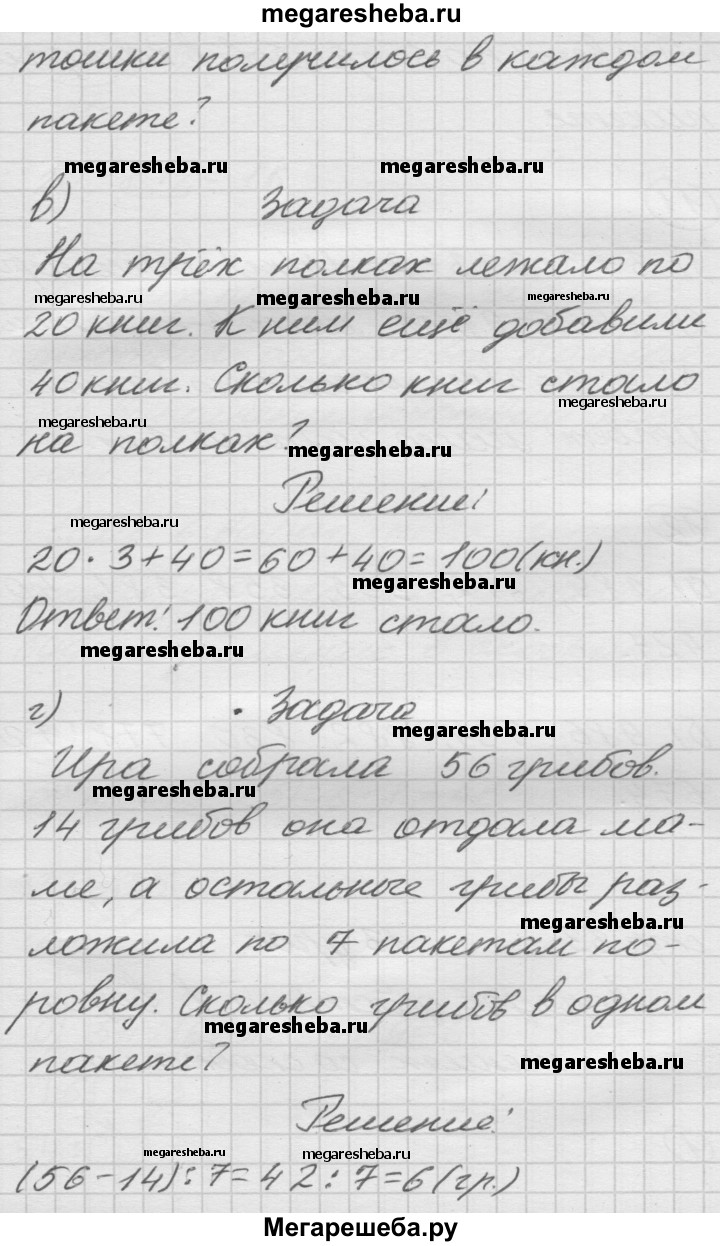 megaresheba.ru
тошки получилось в каждом
пакете?
megaresheba.ru megaresheba.ru
в) Задача
На трёх полках лежало по
megaresheba.ru megaresheba.ru megaresheba.ru
20 книг. К ним ещё добавили
40 книг. Сколько книг стало
megaresheba.ru
megaresheba.ru
на полках?
megaresheba.ru
Решение:
megaresheba.ru
20 · 3 + 40 = 60 + 40 = 100 (кн.)
megaresheba.ru
Ответ: 100 книг стало.
megaresheba.ru
г) Задача
megaresheba.ru
Ира собрала 56 грибов.
megaresheba.ru
14 грибов она отдала ма-
ме, а остальные грибы раз-
megaresheba.ru
ложила по 7 пакетам по-
ровну. Сколько грибов в одном
megaresheba.ru
пакете?
megaresheba.ru
Решение:
megaresheba.ru megaresheba.ru
(56 - 14) : 7 = 42 : 7 = 6 (гр.)
Мегарешеба.ру